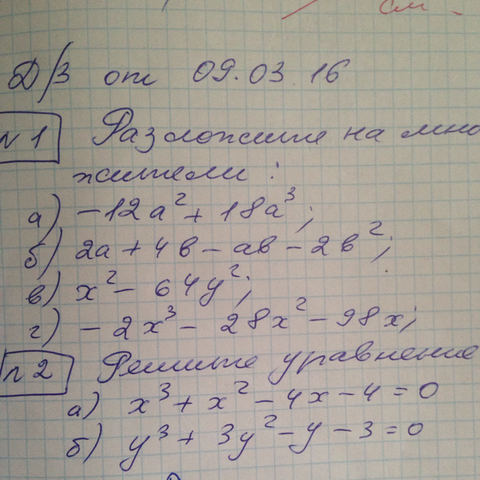 см.
Д/З от 09.03.16
N1 Разложите на мно
жители:
а) -12a² + 18a³;
б) 2a + 4b - ab - 2b²;
в) x² - 64y²;
г) -2x³ - 28x² - 98x;
N2 Решите уравнение
а) x³ + x² - 4x - 4 = 0
б) y³ + 3y² - y - 3 = 0